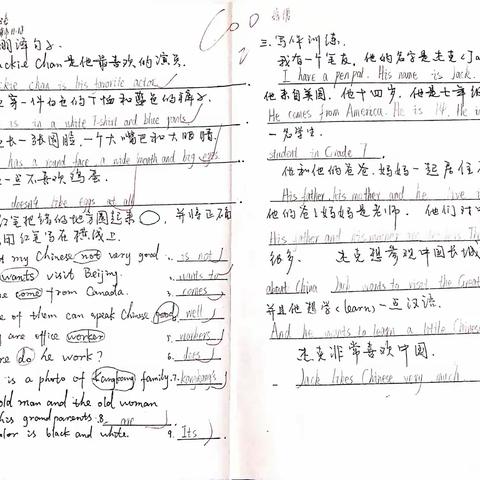 翻译句子.
ackie Chan是他最喜欢的演员.
ckie chan is his favorite actor
一件白色的T恤和蓝色的裤子.
is in a white T-shirt and blue pants
长一张圆脸,一个大嘴巴和大眼睛.
has a round face, a wide mouth and big eyes.
一点不喜欢鸡蛋.
doesn't like eggs at all
红笔把错的地方圈起来,并将正确
用红笔写在横线上.
t my Chinese not very good. is not
wants visit Beijing. wants to
come from Canada. 3. comes
e of them can speak Chinese good well
y are office worker 5. workers
re do he work? 6. does
is a photo of Kangkang family. 7. Kangkang's
old man and the old woman
his grandparents. 8. are
olor is black and white. 9. Its
三.写作训练.
我有一个笔友,他的名字是杰克(Ja
I have a pen pal. His name is Jack.
他来自美国,他十四岁,他是七年级
He comes from America. He is 14. He i
一名学生.
student in Grade 7
他和他的爸爸、妈妈一起居住
His father, his mother and he live
他的爸爸妈妈是老师. 他们对中
His father and his mother are
很多. 杰克想参观中国长城
about China Jack wants to visit the Great
并且他想学(learn)一点汉语.
And he wants to learn a little Chinese
杰克非常喜欢中国.
Jack likes Chinese very much